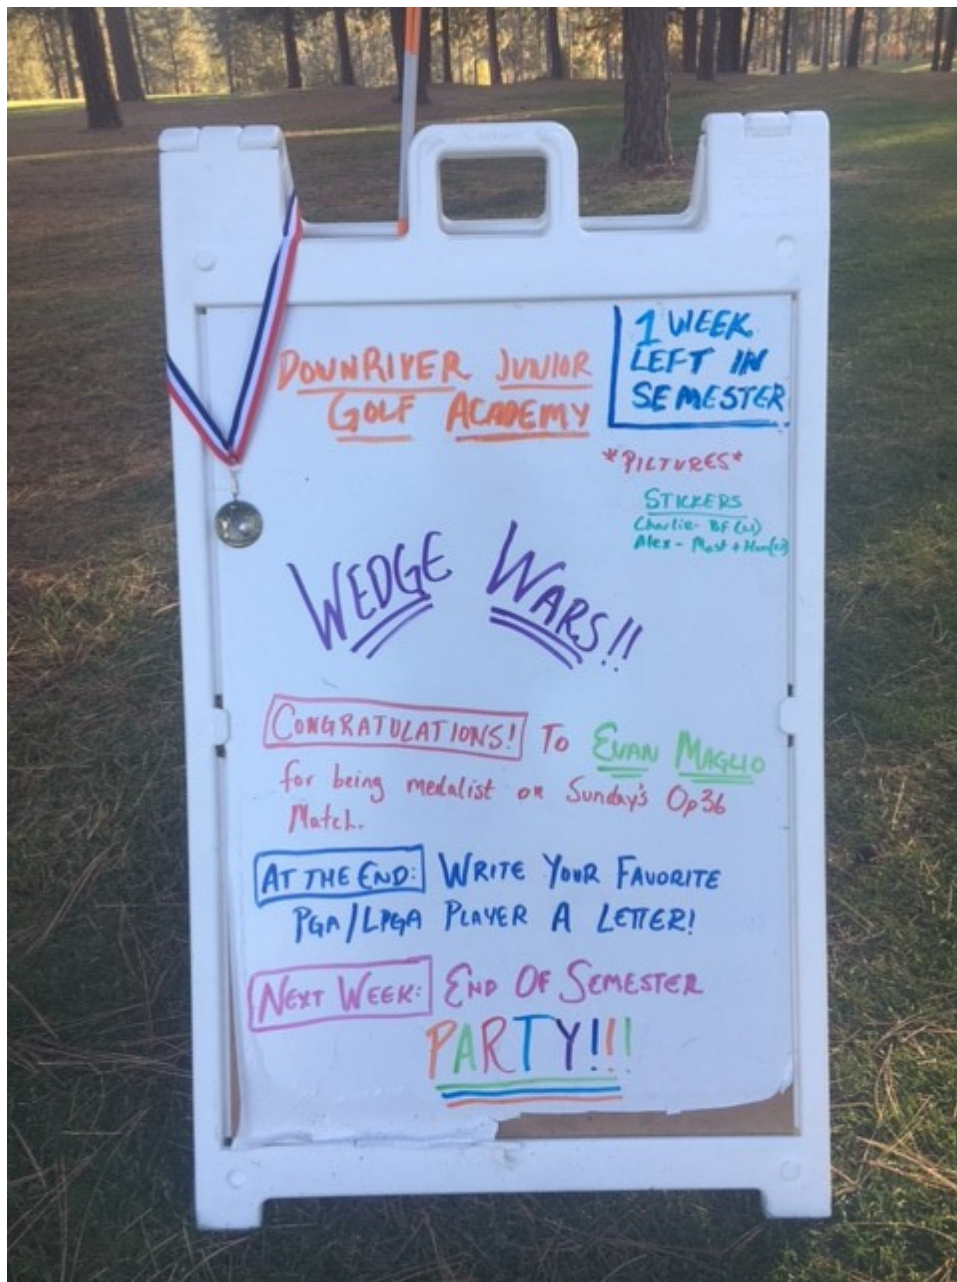 DOWNRIVER JUNIOR
GOLF ACADEMY
1 WEEK
LEFT IN
SEMESTER
*PICTURES*
STICKERS
Charlie- BF
Alex - Most + Hon
WEDGE WARS!!
CONGRATULATIONS! TO EVAN MAGLIO
for being medalist on Sunday's Op36
Match.
AT THE END: WRITE YOUR FAVORITE
PGA/LPGA PLAYER A LETTER!
NEXT WEEK: END OF SEMESTER
PARTY!!!